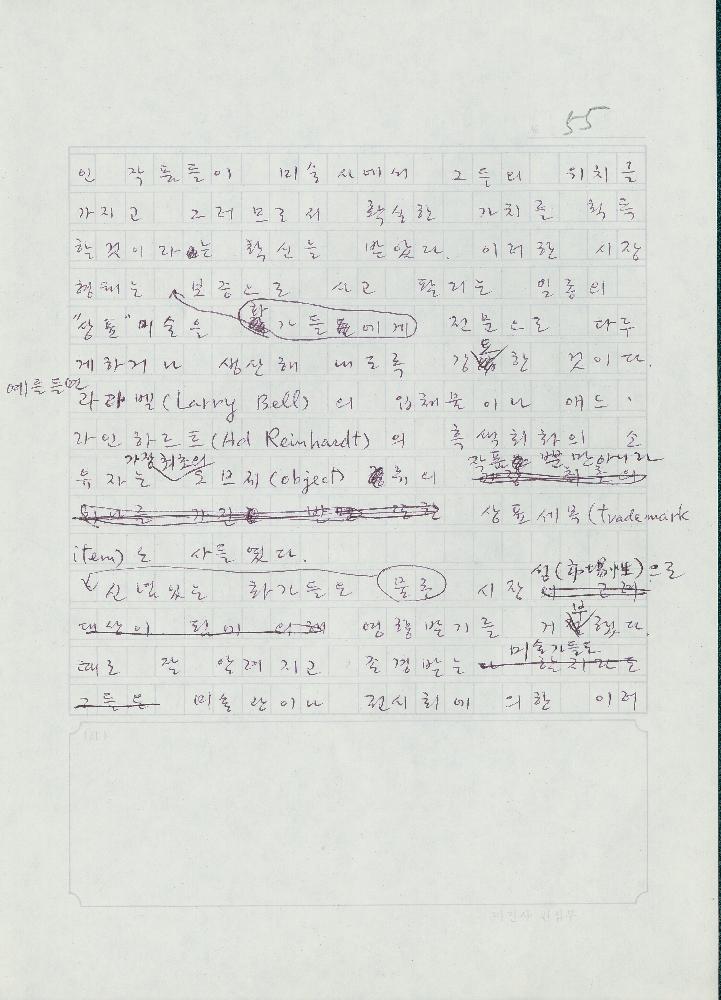 55
인 작품들이 미술사에서 그들의 위치를
가지고 그러므로서 확실한 가치를 획득
할것이라는 확신을 받았다. 이러한 시장
형태는 보증으로 사고 팔리는 일종의
"상표"미술을 화가들에게 전문으로 다루
게하거나 생산해 내도록 강요한 것이다.
예를들면
라리벨(Larry Bell)의 입체물이나 애드·
라인하르트(Ad Reinhardt)의 흑색회화의 소
가장최초의 작품 뿐만아니라
유자는 오브제(object) 류의
상표세목(trademark
item)도 사들였다.
성(市場性)으로
신념있는 화가들도 물론 시장
영향받기를 거부했다.
미술가들도
때로 잘 알려지고 존경받는
그들도 미술관이나 전시회에 의한 이러